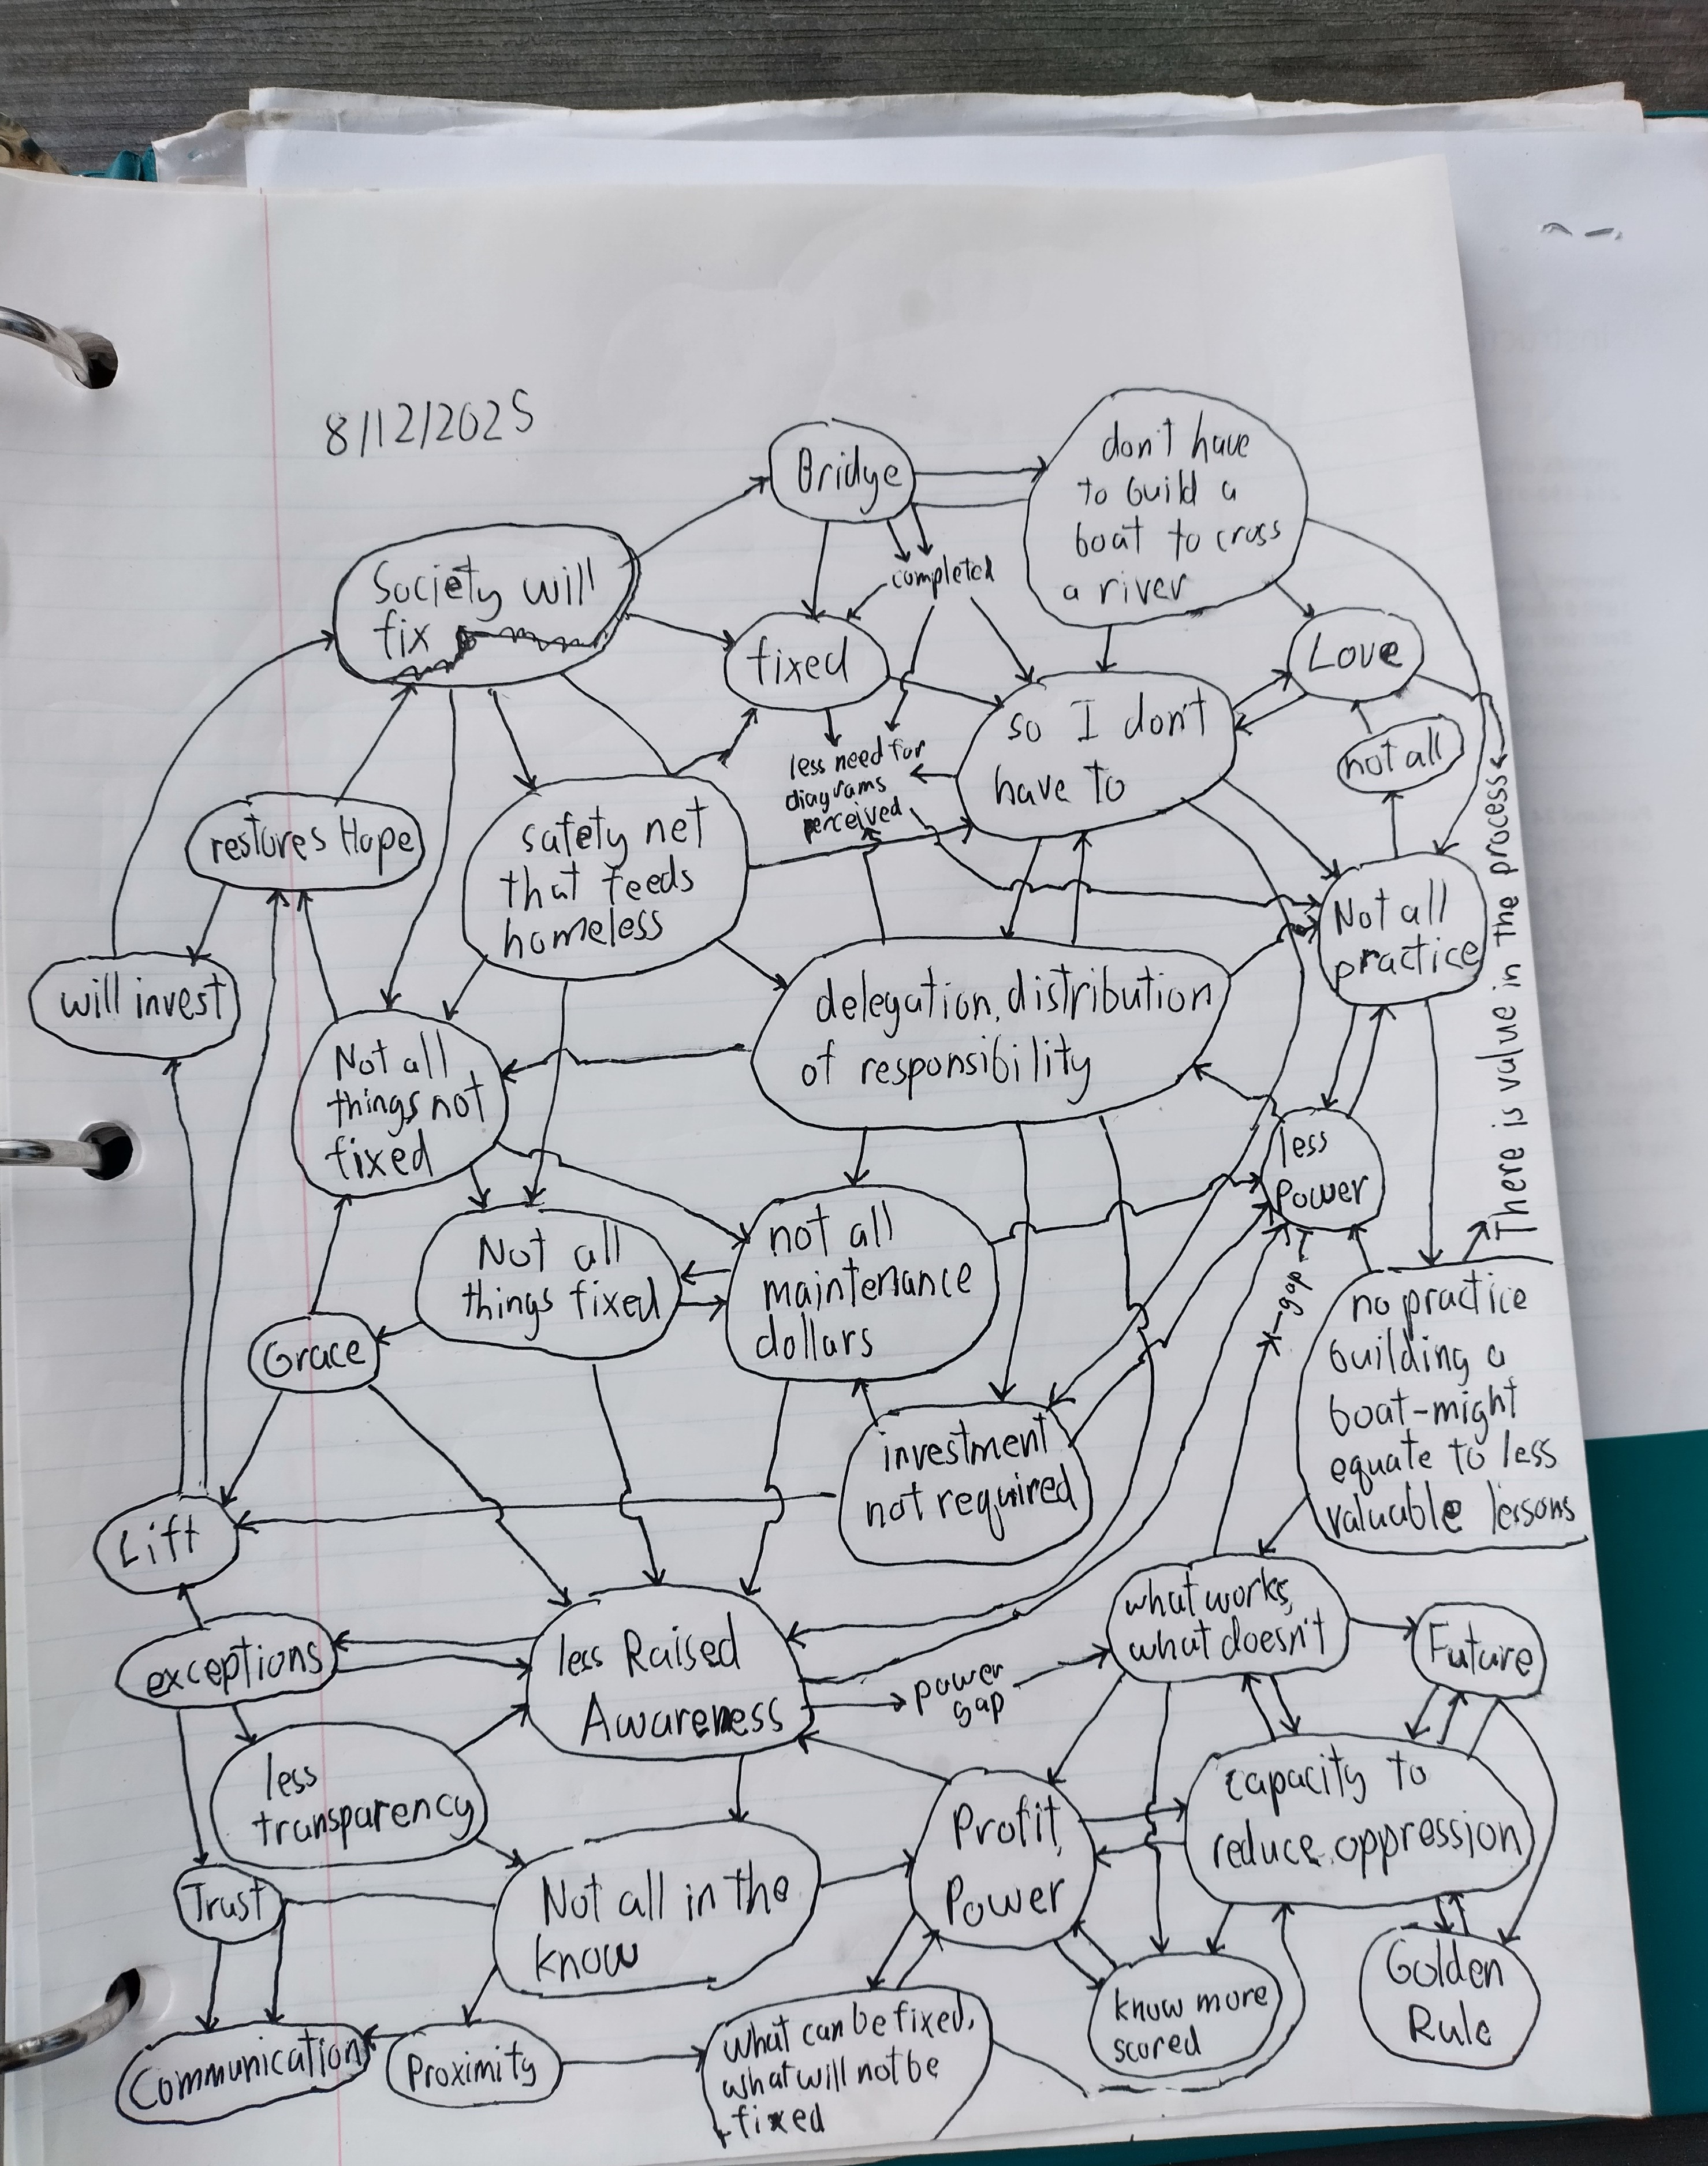 8/12/2025
Bridge
don't have
to build a
boat to cross
a river
completed
Society will
fix
fixed
Love
so I don't
have to
not all
less need for
diagrams
perceived
restores Hope
safety net
that feeds
homeless
Not all
practice
There is value in the process
will invest
delegation, distribution
of responsibility
Not all
things not
fixed
less
Power
Not all
things fixed
not all
maintenance
dollars
gap
no practice
building a
boat-might
equate to less
valuable lessons
Grace
investment
not required
Lift
what works,
what doesn't
Future
exceptions
less Raised
Awareness
power
gap
less
transparency
Profit,
Power
capacity to
reduce oppression
Trust
Not all in the
know
know more
scored
Golden
Rule
Communication
Proximity
what can be fixed,
what will not be
fixed